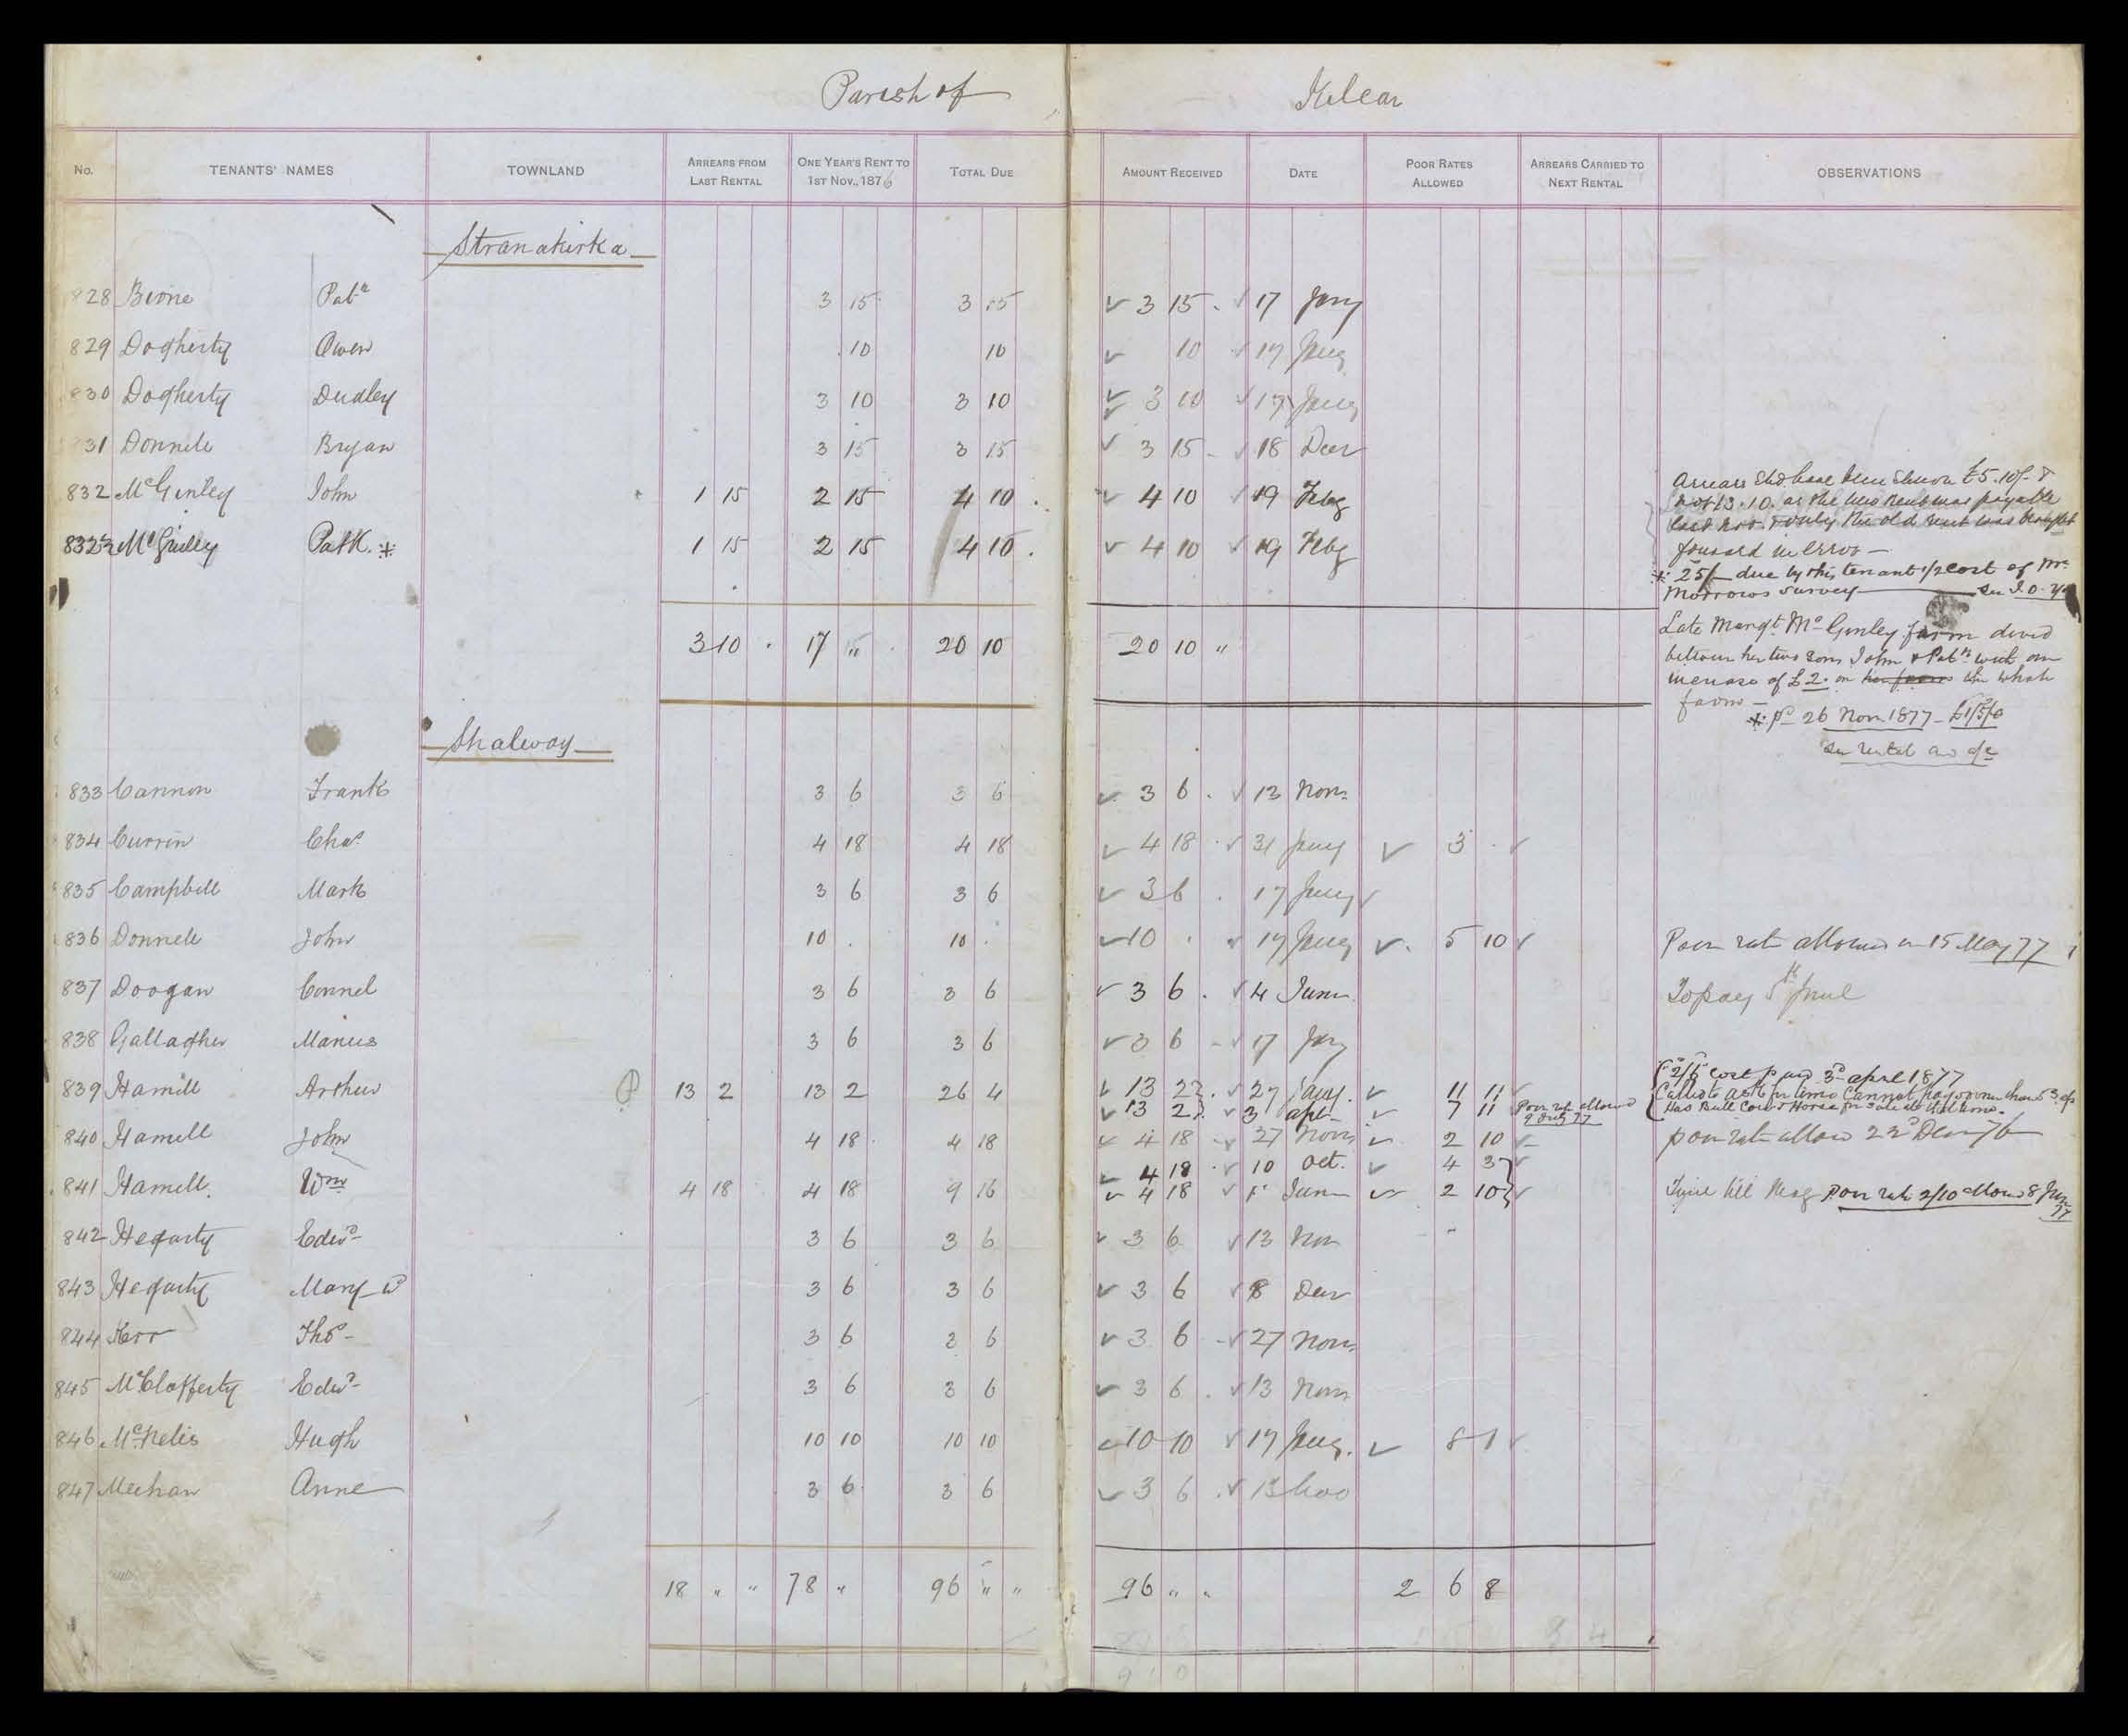 Parish of Kilcar
No. TENANTS' NAMES TOWNLAND ARREARS FROM LAST RENTAL ONE YEAR'S RENT TO 1ST NOV., 1876 TOTAL DUE AMOUNT RECEIVED DATE POOR RATES ALLOWED ARREARS CARRIED TO NEXT RENTAL OBSERVATIONS
Stranakirka
828 Birne Patk 3 15 3 15 3 15 17 Jany
829 Dogherty Owen 10 10 10 17 Jany
830 Dogherty Dudley 3 10 3 10 3 10 17 Jany
831 Donnell Bryan 3 15 3 15 3 15 18 Decr
832 McGinley John 1 15 2 15 4 10 4 10 19 Feby
Arrears Shd have been Shewn £5.10/- &
not £3.10. as the new Rent was payable
last Nov. & only the old rent was brought
forward in error —
832½ McGinley Patk. * 1 15 2 15 4 10 4 10 19 Feby
* 25/- due by this tenant 1/2 cost of Mr.
Morrows survey
3 10 17 " 20 10 20 10 "
Late Margt. McGinley farm divd
between her two sons John & Patk with an
increase of £2. on her farm the whole
farm —
* pd 26 Nov. 1877 - £1/5/0
Shalwoy
833 Cannon Frank 3 6 3 6 3 6 13 Novr
834 Currin Chas. 4 18 4 18 4 18 31 Jany 3
835 Campbell Mark 3 6 3 6 3 6 17 Jany
836 Donnell John 10 10 10 17 Jany 5 10 Poor rate allowed on 15 May 77
837 Doogan Connel 3 6 3 6 3 6 4 June To pay 5th June
838 Gallagher Manus 3 6 3 6 3 6 17 Jany
839 Hamill Arthur 13 2 13 2 26 4 13 2 27 Jany. 11 11
2/6 cost paid 3d april 1877
13 2 3 apl 7 11 Poor rate allowed
Has Bull Cow & Horse for sale
840 Hamill John 4 18 4 18 4 18 27 Novr 2 10 poor rate allowd 22d Decr 76
841 Hamill. Wm 4 18 4 18 9 16 4 18 10 Oct. 4 3
4 18 1st June 2 10 Time till May Poor rate 2/10 allowd 8 June 77
842 Hegarty Edwd 3 6 3 6 3 6 13 Nov
843 Hegarty Mary Wd 3 6 3 6 3 6 8 Decr
844 Kerr Thos 3 6 3 6 3 6 27 Novr
845 McClafferty Edwd 3 6 3 6 3 6 13 Novr
846 McNelis Hugh 10 10 10 10 10 10 17 Jany. 8 1
847 Meehan Anne 3 6 3 6 3 6 13 Nov
18 " " 78 " 96 " " 96 " " 2 6 8